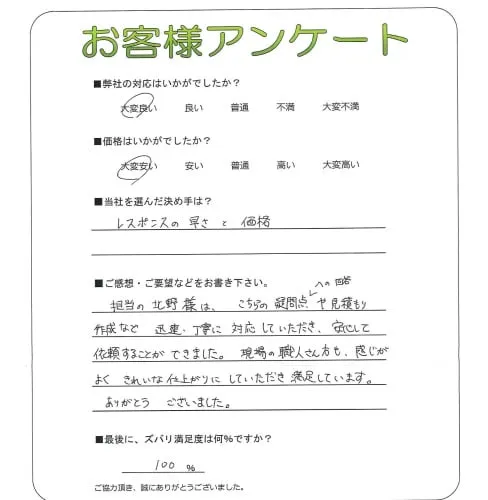 お客様アンケート
■弊社の対応はいかがでしたか？
大変良い 良い 普通 不満 大変不満
■価格はいかがでしたか？
大変安い 安い 普通 高い 大変高い
■当社を選んだ決め手は？
レスポンスの早さと価格
■ご感想・ご要望などをお書き下さい。
への回答
担当の北野様は、こちらの疑問点や見積もり
作成など迅速・丁寧に対応していただき、安心して
依頼することができました。現場の職人さん方も、感じが
よくきれいな仕上がりにしていただき満足しています。
ありがとうございました。
■最後に、ズバリ満足度は何%ですか？
100 %
ご協力頂き、誠にありがとうございました。